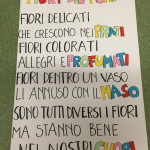 FIORI DELICATI
CHE CRESCONO NEI PRATI
FIORI COLORATI
ALLEGRI E PROFUMATI
FIORI DENTRO UN VASO
LI ANNUSO CON IL NASO
SONO TUTTI DIVERSI I FIORI
MA STANNO BENE
NEI NOSTRI CUORI